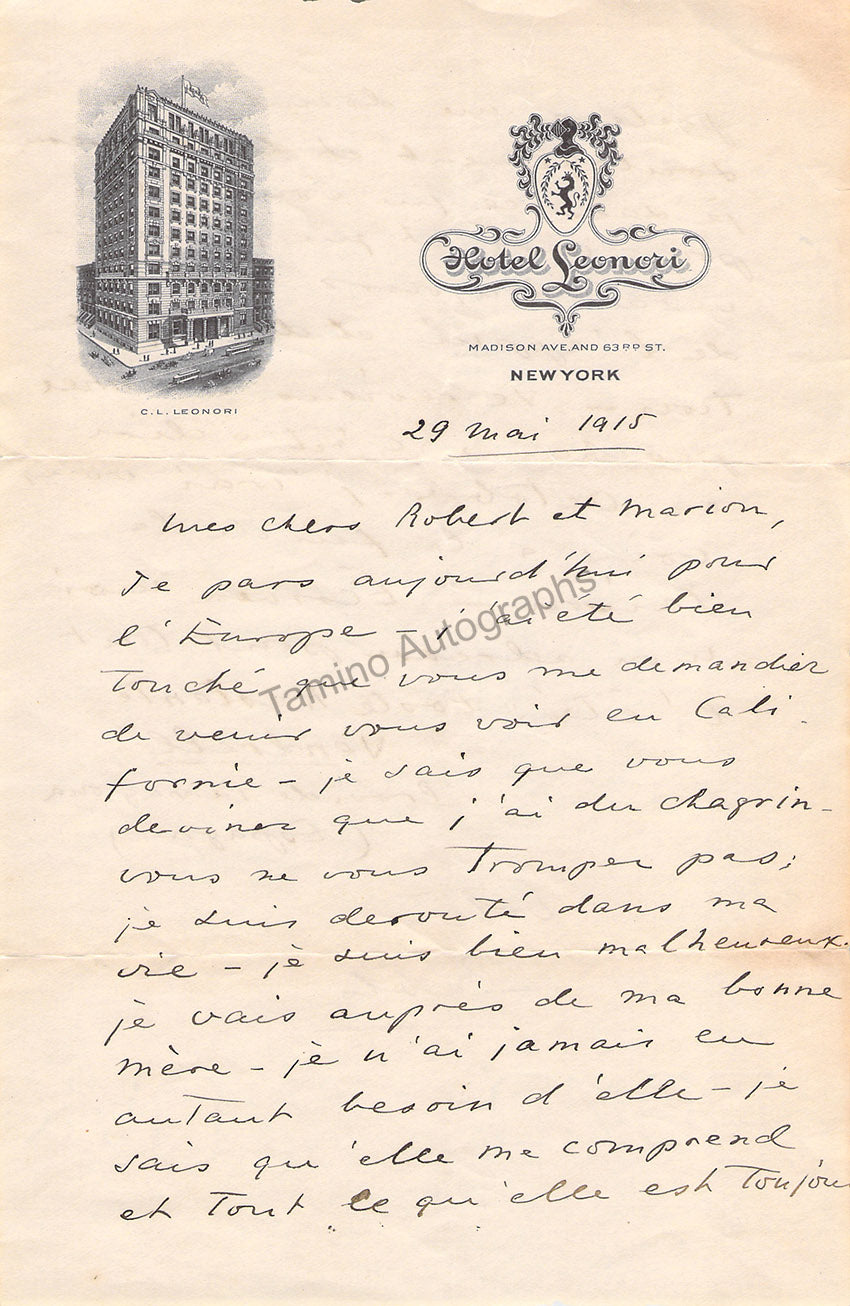 Hotel Leonori
MADISON AVE. AND 63RD ST.
NEW YORK
C. L. LEONORI
29 mai 1915
Mes chers Robert et Marion,
Je pars aujourd'hui pour
l'Europe – j'ai été bien
touché que vous me demandiez
de venir vous voir en Cali-
fornie – je sais que vous
devinez que j'ai du chagrin –
vous ne vous trompez pas;
je suis derouté dans ma
vie – je suis bien malheureux.
je vais auprès de ma bonne
mère – je n'ai jamais eu
autant besoin d'elle – je
sais qu'elle me comprend
et tout ce qu'elle est toujou
Tamino Autographs